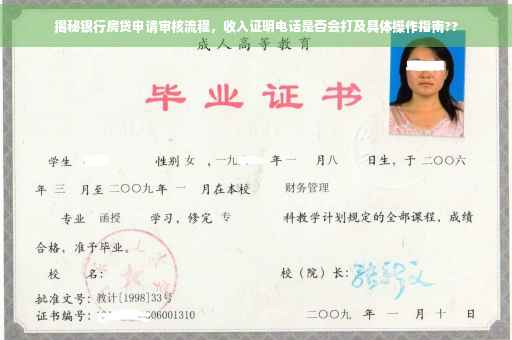 揭秘银行房贷申请审核流程，收入证明电话是否会打及具体操作指南??
成人高等教育
毕业证书
学生 性别 女 ，一九 年 一 月八 日生，于 二〇〇六
年 三 月至 二〇〇九 年 一 月在本校 财务管理
专业 函授 学习，修完 专 科教学计划规定的全部课程，成绩
合格，准予毕业。
校 名： 校（院）长：
批准文号：教计[1998]33号
证书编号： 006001310 二〇〇九 年 一 月 十 日